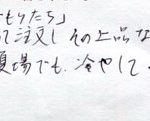 もりたら」
て注文し その上品な
夏場でも、冷やして